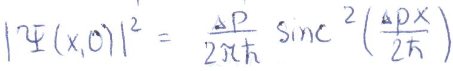 |Ψ(x,0)|² = Δp/2πħ sinc²(Δpx/2ħ)